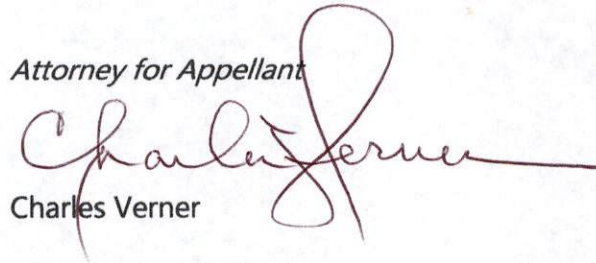 Attorney for Appellant
Charles Verner
Charles Verner